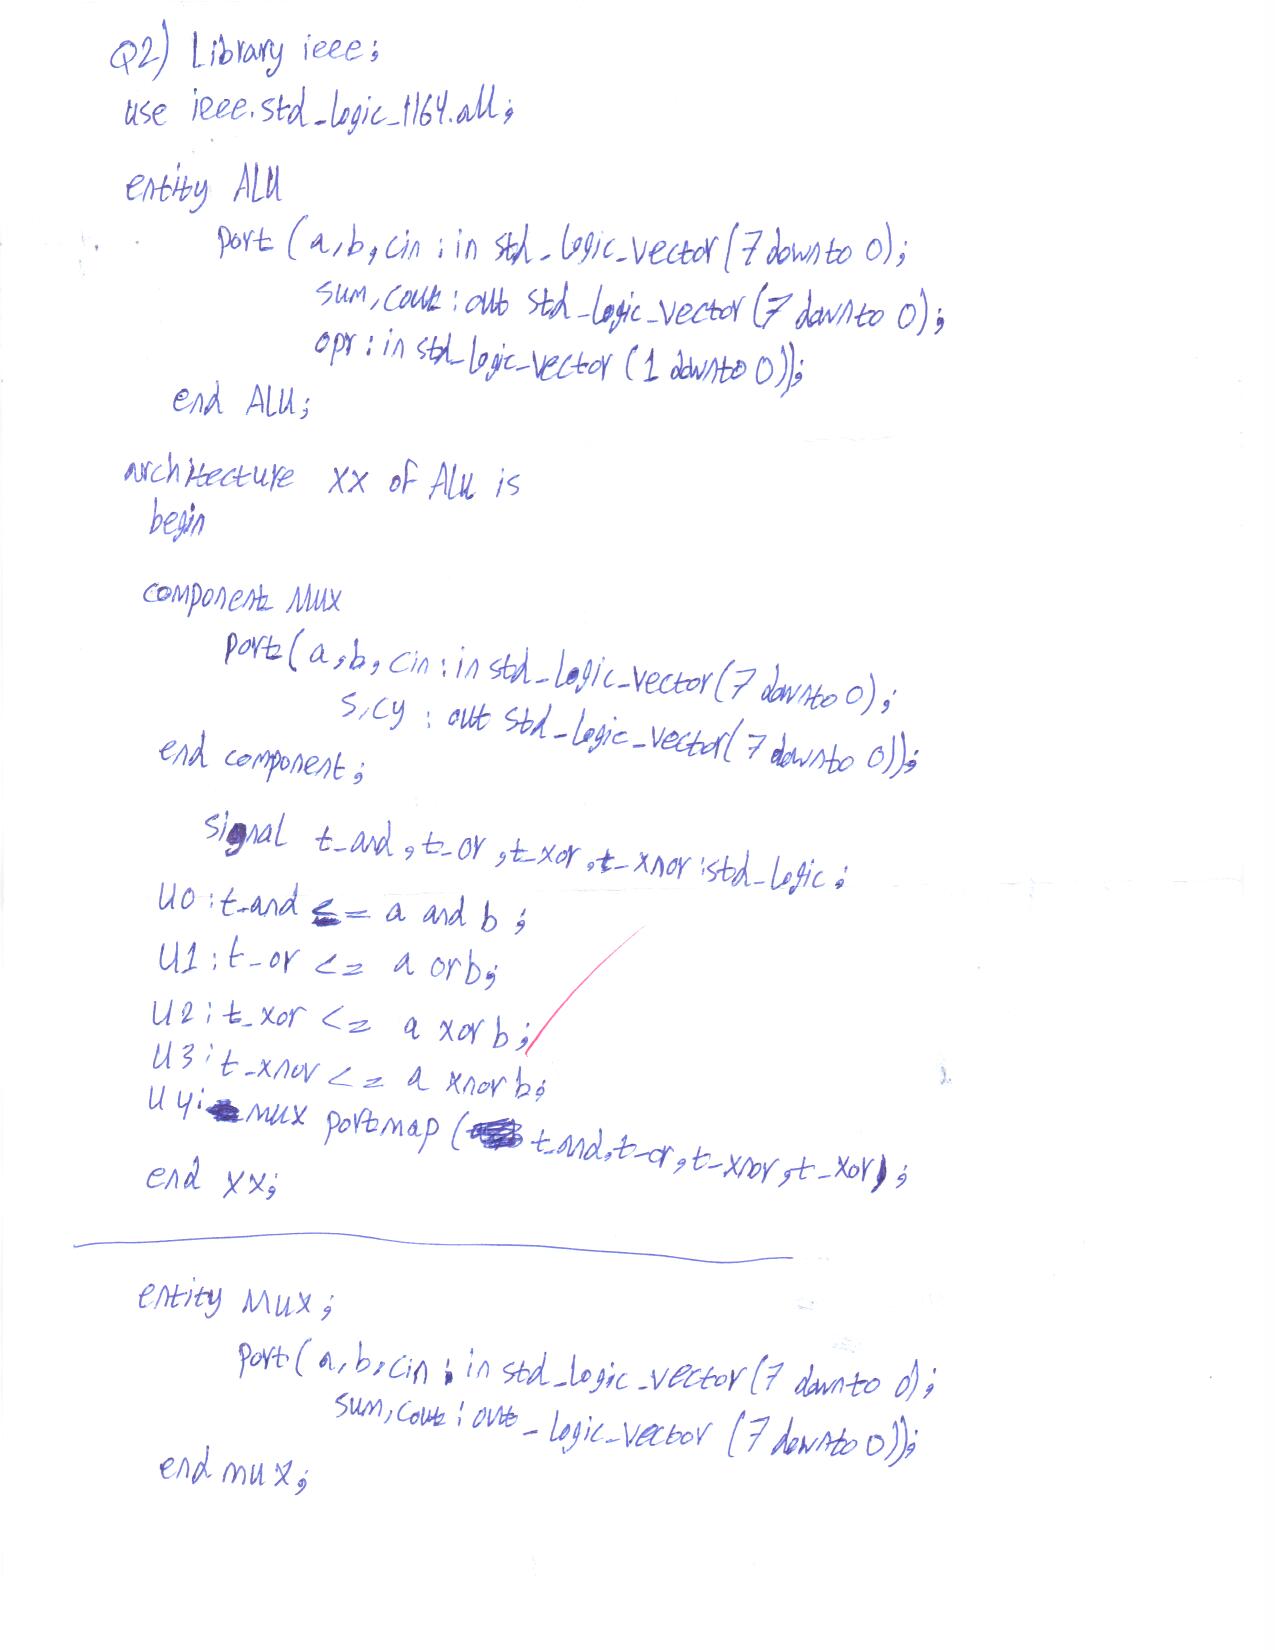 Q2) Library ieee;
use ieee.std_logic_1164.all;
entity ALU
port (a,b,cin : in std_logic_vector(7 downto 0);
sum, cout : out std_logic_vector(7 downto 0);
opr : in std_logic_vector (1 downto 0));
end ALU;
architecture xx of ALU is
begin
component MUX
port(a,b,cin : in std_logic_vector(7 downto 0);
s,cy : out std_logic_vector(7 downto 0));
end component;
signal t_and, t_or, t_xor, t_xnor : std_logic;
U0 : t_and <= a and b;
U1 : t_or <= a or b;
U2 : t_xor <= a xor b;
U3 : t_xnor <= a xnor b;
U4 : mux portmap ( t_and, t_or, t_xnor, t_xor);
end xx;
entity MUX;
port(a,b,cin : in std_logic_vector(7 downto 0);
sum, cout : out _logic_vector (7 downto 0));
end mux;